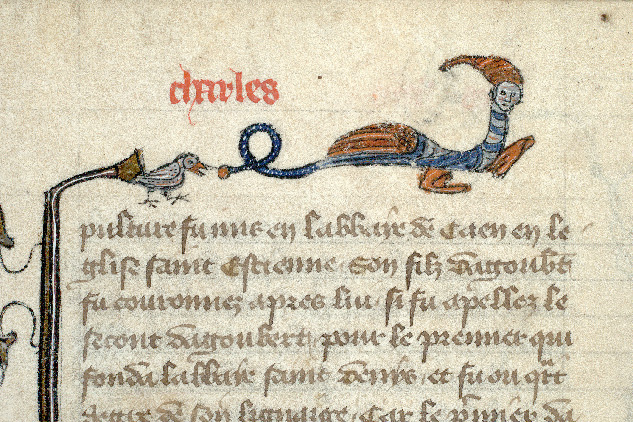 charles
pulture fu mis en labbaye de Caen en le
glise saint Estienne. Son filz dagoubt
fu couronnez apres lui. si fu apellez le
secont dagoubert. pour le premier qui
fonda labbaie saint denys. et fu ou qrt
degre de son lignaige. Car le pmier da